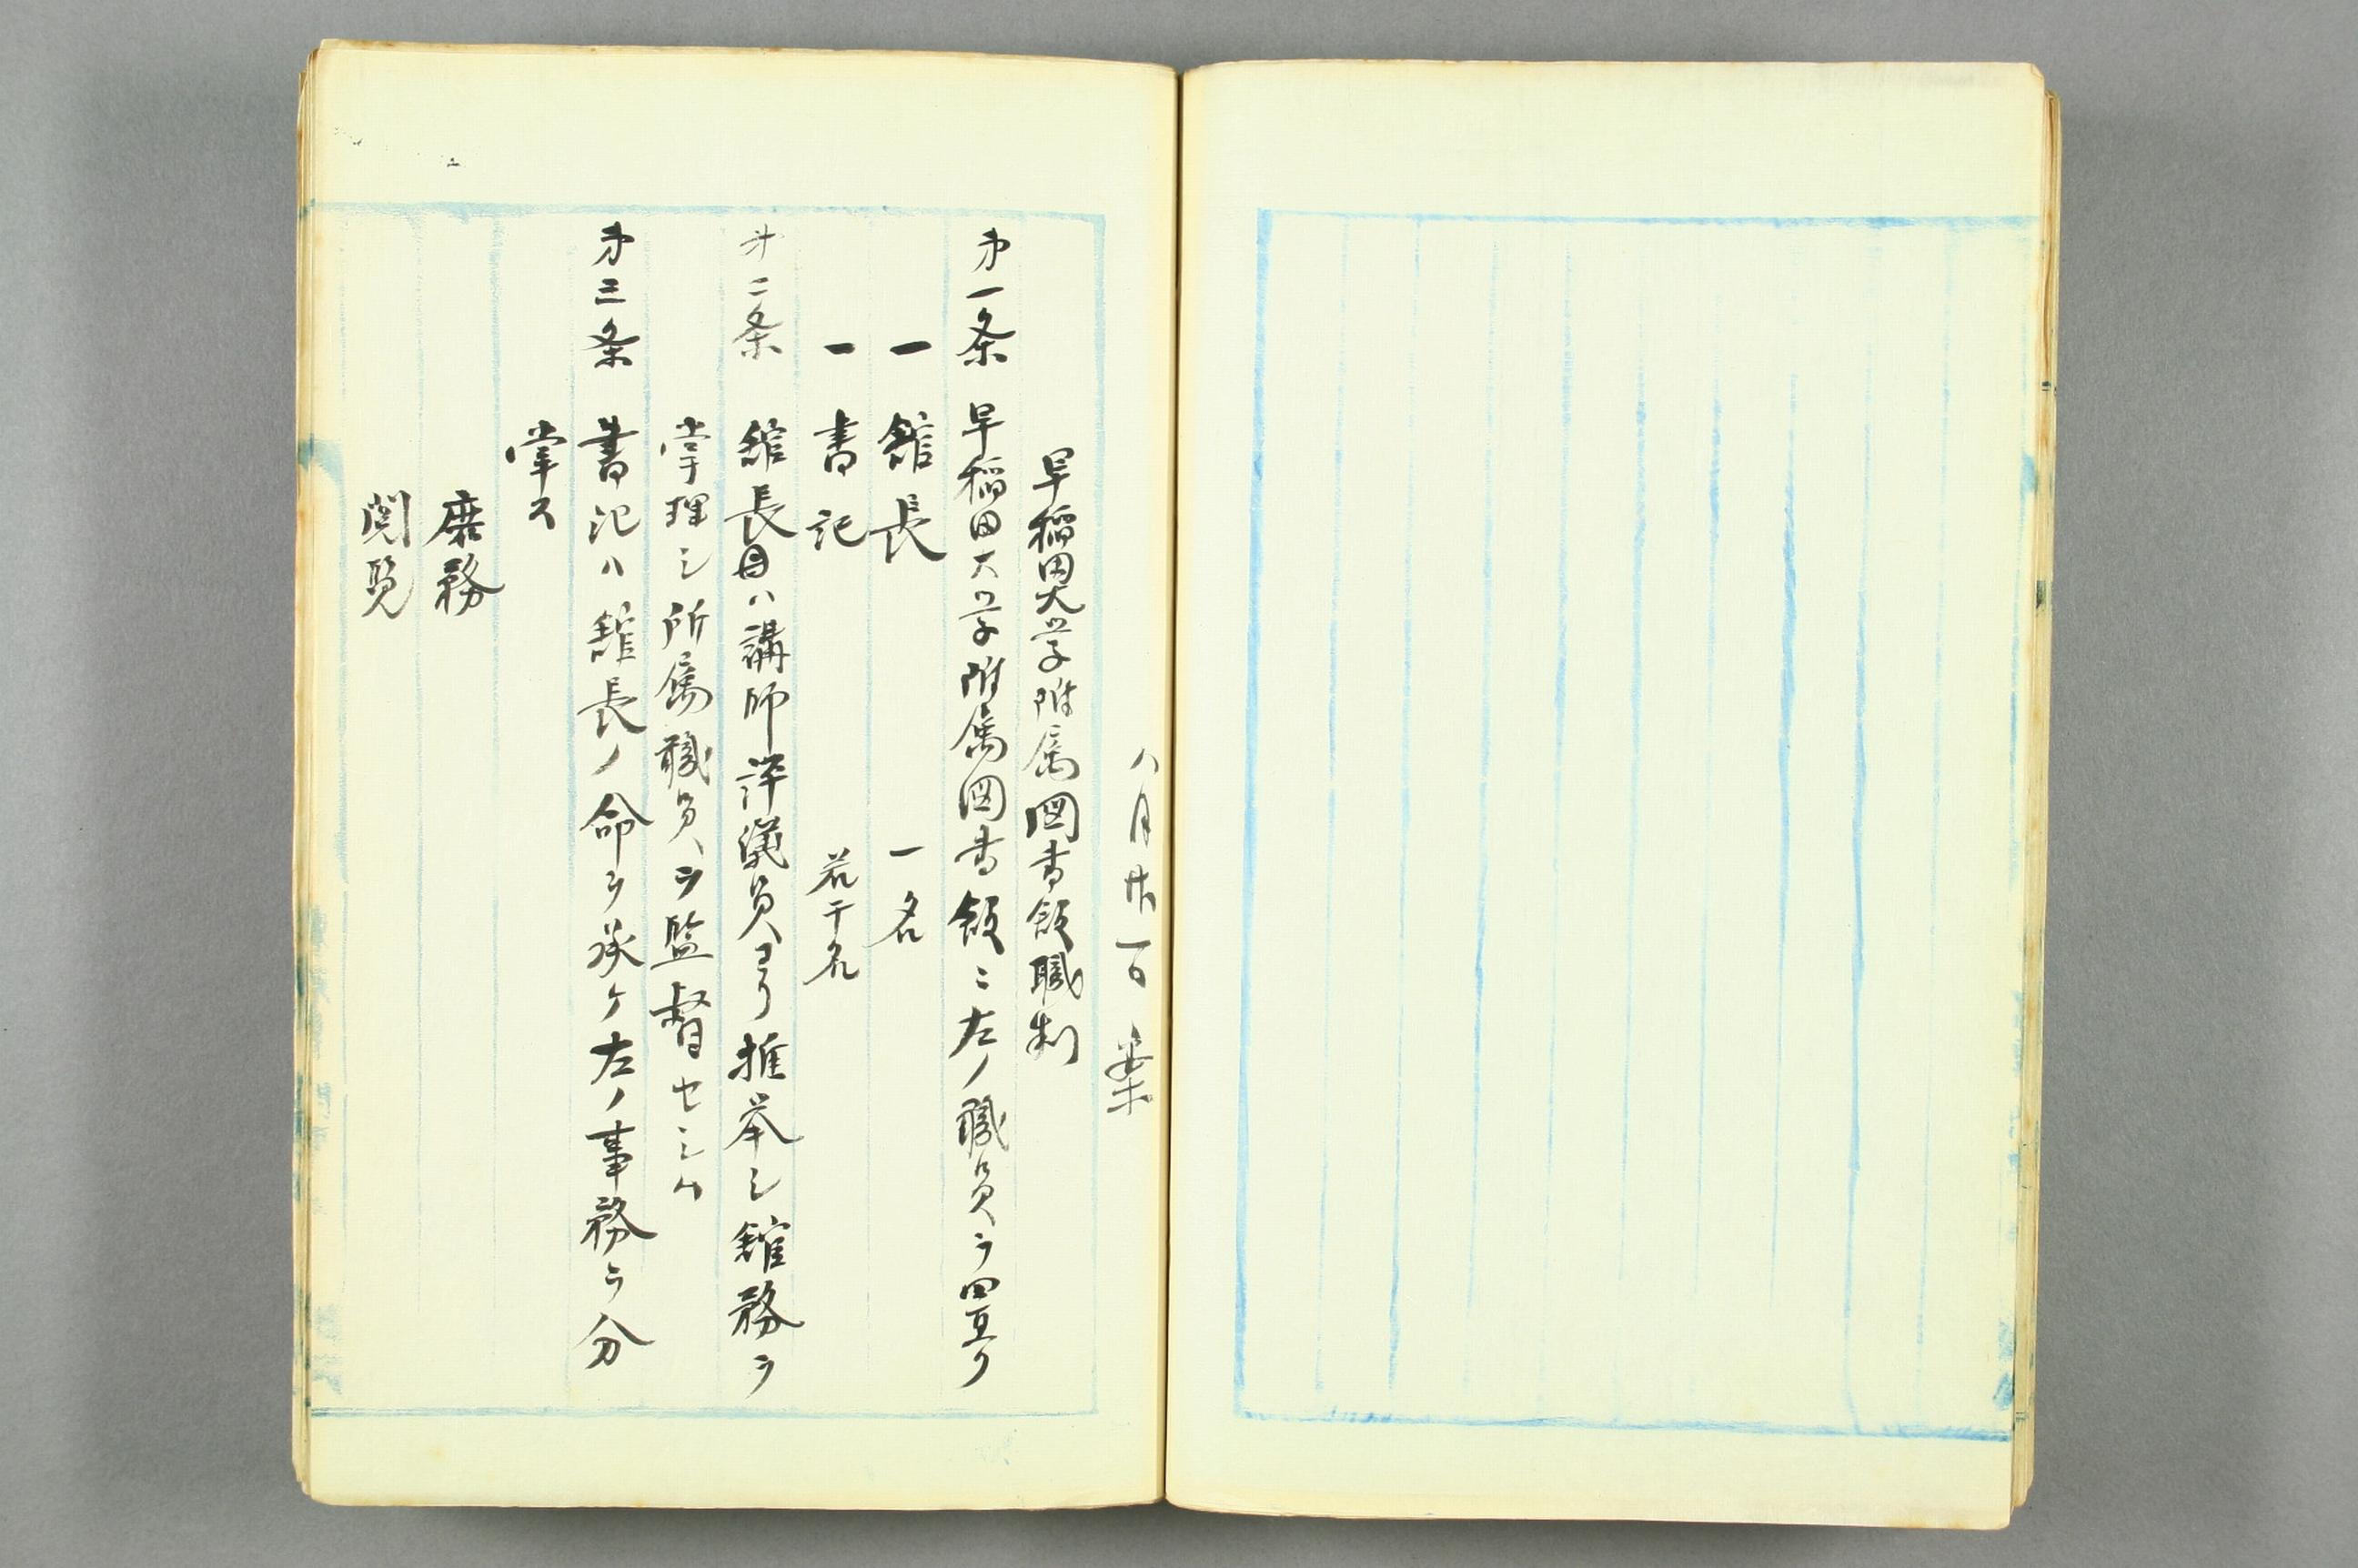 八月廿一日 案
早稲田大学附属図書館職制
第一条 早稲田大学附属図書館ニ左ノ職員ヲ置ク
一 館長 一名
一 書記 若干名
第二条 館長ハ講師評議員ヨリ推挙シ館務ヲ
掌理シ所属職員ヲ監督セシム
第三条 書記ハ館長ノ命ヲ承ケ左ノ事務ヲ分
掌ス
庶務
閲覧